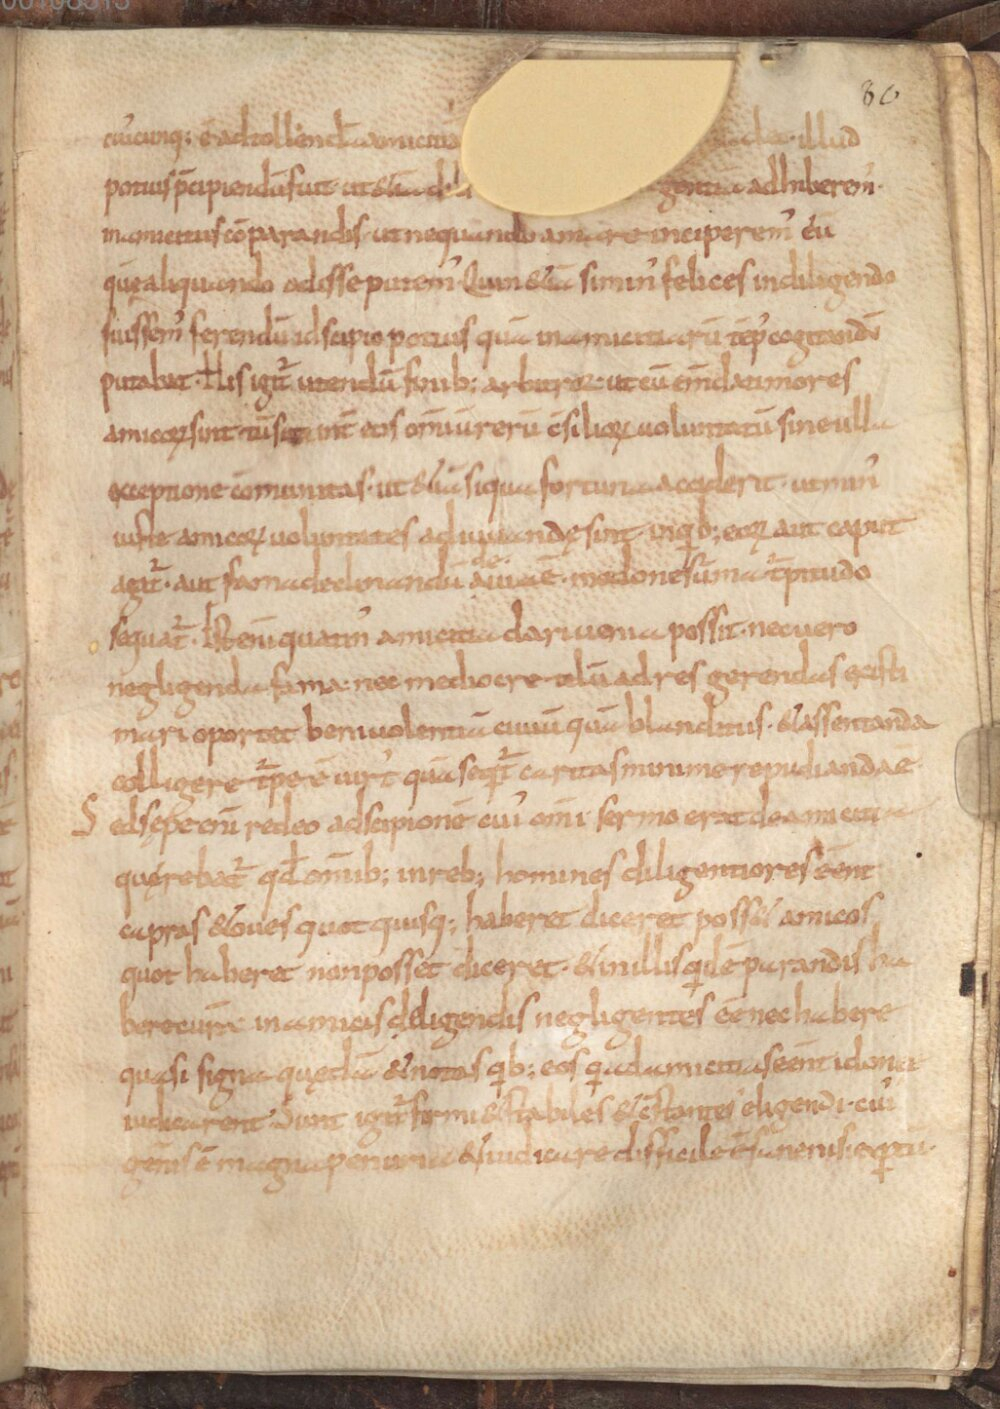 80
cuicunq; ē ad tollend̄ amiciti illud
potius p̄cipiendū fuit ut & iā dili gentia adhiberem᾿
in amicitiis cōparandis · ut ne quando amare inciperem᾿ eū
quę aliquando odisse putem᾿ · Quin & iā si min᾿ felices in diligendo
fuissem᾿ ferendū id scipio potius quā inamicitiarū tēp᾿ cogitandū
putabat · His igit᷑ utendū finib; arbitror · ut cū emdati mores
amicoꝝ sint · tū sit int̄ eos om̄iū rerū c̄silioꝝ uoluntatū sine ulla
exceptione cōmunitas · ut & iā siqua fortuna acciderit · ut min᾿
iuste amicoꝝ uoluntates adiuuandę sint · inqb; eoꝝ aut caput
agit᷑ · aut fama declinandū de uia ē · modo ne sūma t᷑pitudo
sequat᷑ · Est eni quaten᾿ amicitia dari uenia possit · nec uero
negligenda fama · nec mediocre telū ad res gerendas existi
mari oportet beniuolentiā ciuiū quā blanditiis · & assentando
colligere t᷑pe ē uirt᾿ quā seq̇t᷑ caritas minime repudianda ē ·
Sed sępe eni redeo ad scipionē cui᾿ om̄i sermo erat de amicitia
quęrebat᷑ qd̄ omīb; in reb; homines diligentiores eēnt
capras & oues quot quisq; haberet dicere posse amicos
quot haberet non posset dicere · & in illis qdē parandis ha
bere curā in amicis deligendis negligentes eē nec habere
quasi signa quędā & notas qb; eos qi ad amicitia seēnt idonei
iudicarent · Sunt igit᷑ firmi & stabiles & c̄stantes eligendi · cui᾿
gen᾿is ē magna penuria & iudicare difficile ē sane nisi exp̄tū ·